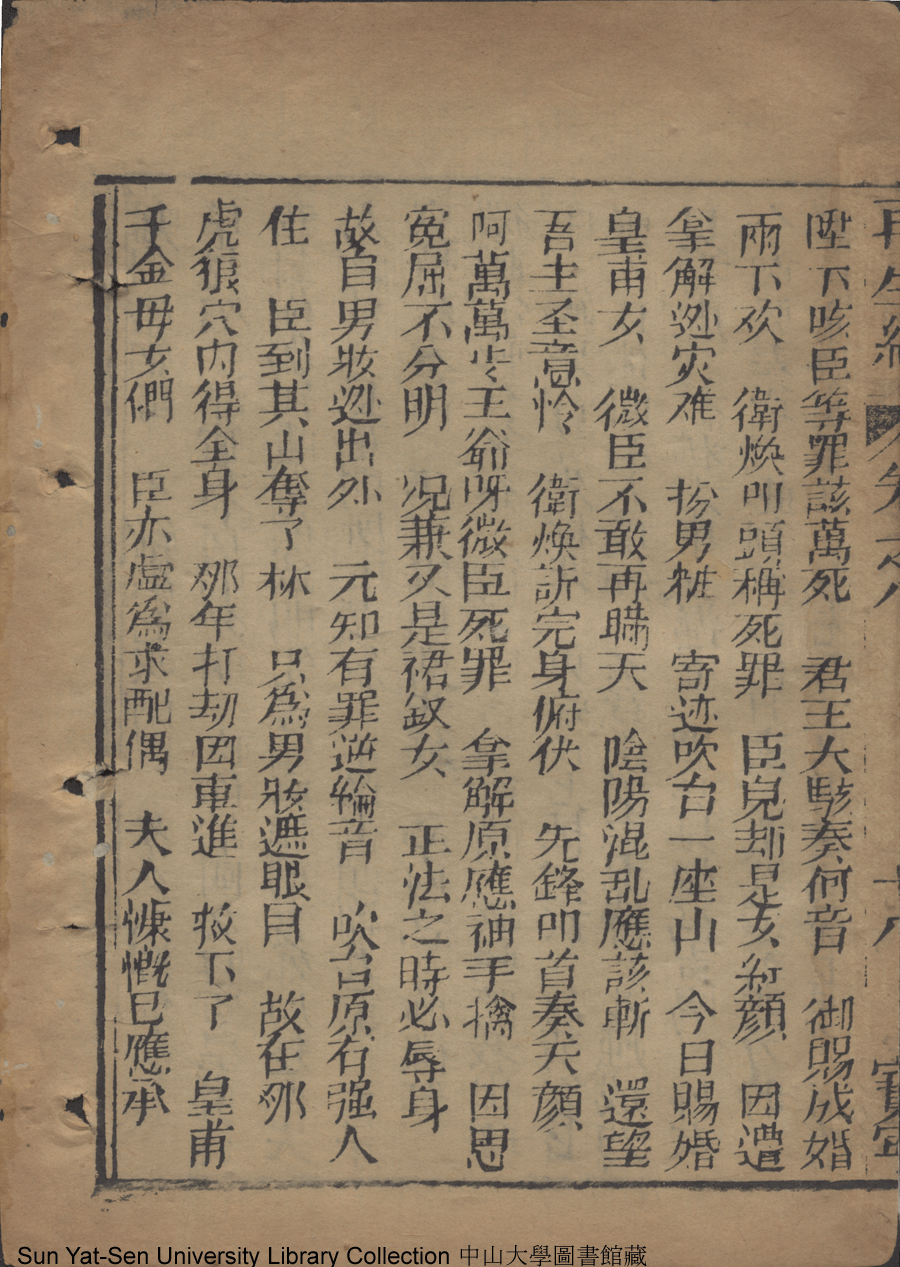 再生緣 卷之八 十八 寳
陞下咳臣等罪該萬死 君王大駭奏何音 御賜成婚
兩下欢 衛煥叩頭稱死罪 臣皃却是女紅顔 因遭
拿解迯灾难 扮男粧 寄迹吹台一座山 今日賜婚
皇甫女 微臣不敢再瞒天 陰陽混乱應該斬 還望
吾主圣意怜 衛煥訴完身俯伏 先鋒叩首奏天顔
阿萬萬歩王爺呀微臣死罪 拿解原應袖手擒 因思
寃屈不分明 况兼又是裙釵女 正法之時必辱身
故自男妝迯出外 元知有罪逆綸音 吹台原有强人
住 臣到其山奪了林 只為男妝遮眼目 故在那
虎狼穴内得全身 那年打刼囚車進 救下了 皇甫
千金母女們 臣亦虚爲求配偶 夫人慷慨已應承
Sun Yat-Sen University Library Collection 中山大學圖書館藏